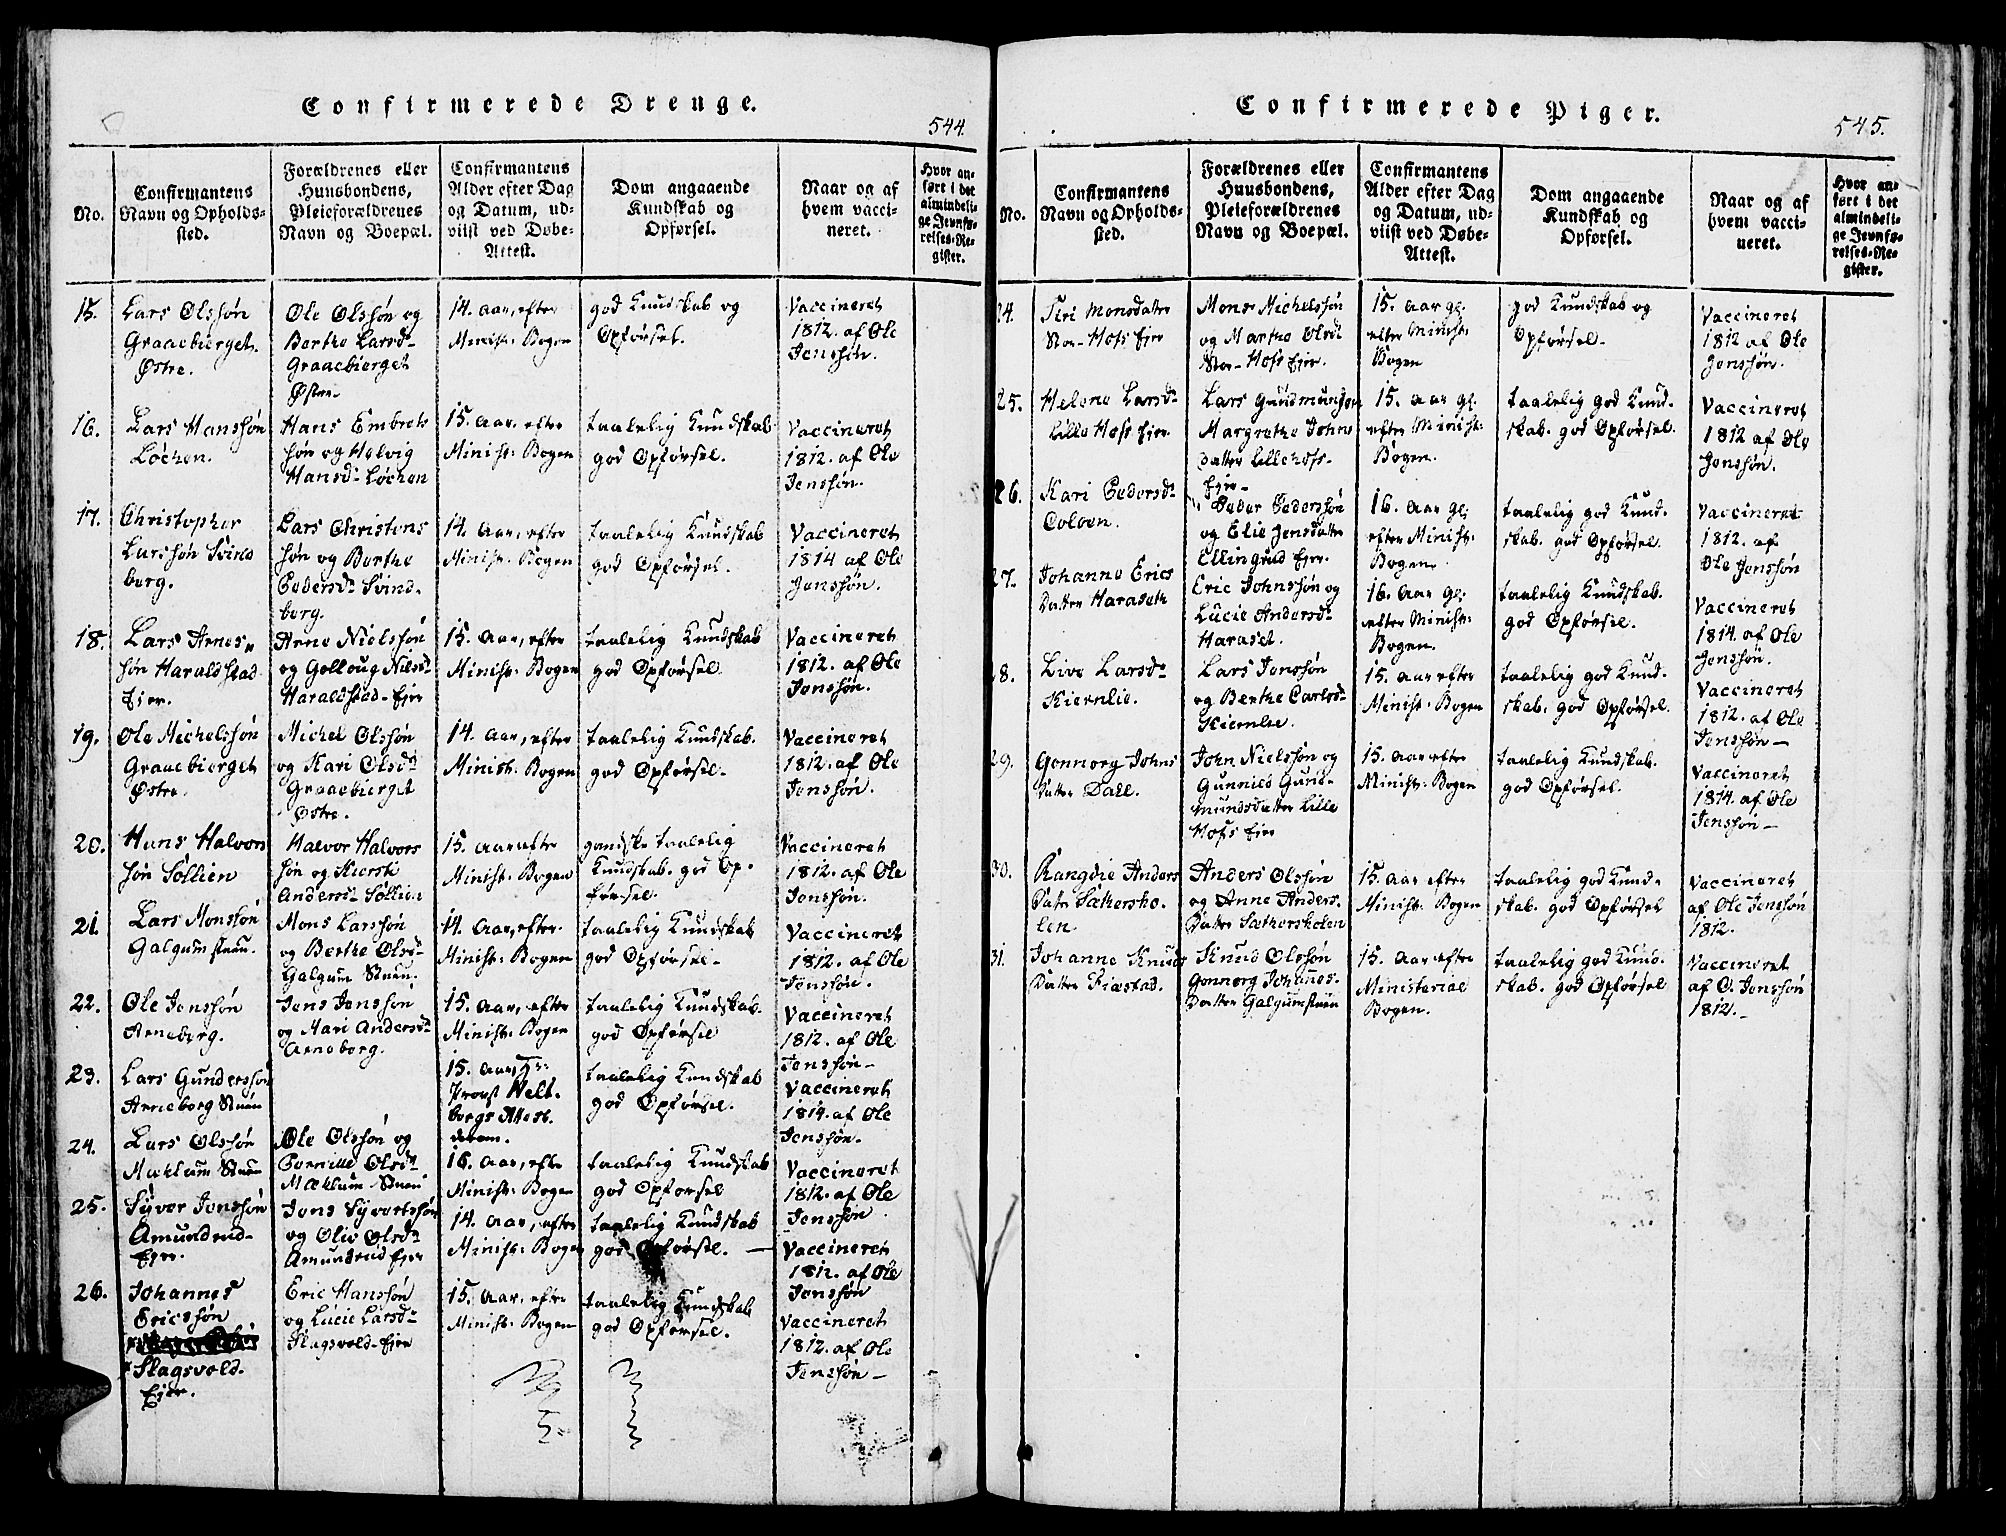 Confirmerede Drenge.
544.
No.
Confirmantens
Navn og Opholds-
sted.
Forældrenes eller
Huusbondens,
Pleieforældrenes
Navn og Boepæl.
Confirmantens
Alder efter Dag
og Datum, ud-
viist ved Døbe-
Attest.
Dom angaaende
Kundskab og
Opførsel.
Naar og af
hvem vacci-
neret.
Hvor an-
ført i det
almindeli-
ge Jevnfø-
relses-Re-
gister.
15.
Lars Olssøn
Graaebierget.
Østre.
Ole Olssøn og
Berthe Larsd
Graaebierget
Østre
14. Aar, efter
Minist: Bogen
god Kundskab og
Opførsel.
Vaccineret
1812. af Ole
Jenssøn.
16.
Lars Hanssøn
Løchen.
Hans Embrets
søn og Helvig
Hansd: Løchen
15. Aar, efter
Minist: Bogen
taalelig Kundskab
god Opførsel.
Vaccineret
1812. af Ole
Jenssøn.
17.
Christopher
Larssøn Svind
berg.
Lars Christens
søn og Berthe
Pedersd: Svind-
berg.
14. Aar, efter
Minist: Bogen
taalelig Kundskab
god Opførsel.
Vaccineret
1814 af Ole
Jenssøn.
18.
Lars Arnes-
søn Haraldstad
Ejer.
Arne Nielssøn
og Golloug Nilsd
Haraldstad-Ejer
15. Aar, efter
Minist: Bogen
taalelig Kundskab
god Opførsel.
Vaccineret
1812. af Ole
Jenssøn.
19.
Ole Michelssøn
Graaebierget
Østre.
Michel Olssøn
og Kari Olsd
Graaebierget
Østre.
14. Aar, efter
Minist: Bogen
taalelig Kundskab.
god Opførsel.
Vaccineret
1812. af Ole
Jenssøn.
20.
Hans Halvors
søn Söllien
Halvor Halvors
søn og Kiersti
Andersd: Söllien
15. Aar efter
Minist: Bogen
gandske taalelig
Kundskab. god Op-
førsel.
Vaccineret
1812. af Ole
Jenssøn.
21.
Lars Monssøn
Galgum stuen.
Mons Larssøn
og Berthe Olsd
Galgum Stuen.
14. Aar, efter.
Minist: Bogen
taalelig Kundskab
god Opførsel
Vaccineret
1812. af Ole
Jenssøn.
22.
Ole Jenssøn
Arneberg.
Jens Jenssøn
og Mari Andersd
Arneberg.
15. Aar, efter
Minist: Bogen
taalelig Kundskab.
god Opførsel
Vaccineret
1812. af Ole
Jenssøn
23.
Lars Gunderssøn
Arneberg Stuen
15. Aar,
Provst
bergs Attest.
taalelig Kundskab
god Opførsel.
Vaccineret
1814. af Ole
Jenssøn.
24.
Lars Olssøn
Mæhlum Stuen
Ole Olssøn og
Pernille Olsd
Mæhlum Stuen
16. Aar, efter
Minist: Bogen
taalelig Kundskab
god Opførsel
Vaccineret
1812. af Ole
Jenssøn
25.
Syver Jenssøn
Amundrud-
Ejer.
Jens Syvertssøn
og Oliv Olsd
Amundrud Ejer
14. Aar, efter
Minist: Bogen
taalelig Kundskab
god Opførsel.
Vaccineret
1812. af Ole
Jenssøn
26.
Johannes
Ericssøn
Skagsvold-
Ejer.
Eric Hanssøn
og Lucie Larsd
Skagsvold-Ejer
15. Aar, efter
Minist: Bogen
taalelig Kundskab
god Opførsel.
Vaccineret
1812. af Ole
Jenssøn
Confirmerede Piger.
545.
No.
Confirmantens
Navn og Opholds-
sted.
Forældrenes eller
Huusbondens,
Pleieforældrenes
Navn og Boepæl.
Confirmantens
Alder efter Dag
og Datum, ud-
viist ved Døbe-
Attest.
Dom angaaende
Kundskab og
Opførsel.
Naar og af
hvem vacci-
neret.
Hvor an-
ført i det
almindeli-
ge Jevnfø-
relses-Re-
gister.
24.
Siri Monsdatter
Stor-Hofs Ejer
Mons Michelssøn
og Marthe Olsd:
Stor-Hofs Ejer.
15. Aar gl:
efter Minist:
Bogen
god Kundskab og
Opførsel.
Vaccineret
1812 af Ole
Jenssøn.
25.
Helene Larsd
Lille Hofs Ejer.
Lars Gudmundsen
Margrethe Johns
datter Lillehofs-
Ejer
15. Aar gl:
efter Minist:
Bogen.
taalelig god Kund-
skab. god Opførsel.
Vaccineret
1812 af Ole
Jenssøn.
26.
Kari Pedersd
Colven.
Peder Pederssøn
og Elie Jensdatter
Ellingrud Ejer.
16. Aar gl:
efter Minist:
Bogen.
taalelig god Kund-
skab. god Opførsel.
Vaccineret
1812. af
Ole Jenssøn
27.
Johanne Erics
Datter Haraseth
Eric Johnssøn og
Lucie Andersd
Haraset.
16. Aar gl:
efter Minist:
Bogen.
taalelig Kundskab.
god Opførsel.
Vaccineret
1814. af Ole
Jenssøn.
28.
Live Larsd
Kiernlie.
Lars Jenssøn
og Berthe Carlsd
Kiernlie.
15. Aar efter
Minist: Bogen
taalelig god Kund-
skab. god Opførsel.
Vaccineret
1812. af Ole
Jenssøn
29.
Gonnorg Johns
Datter Dahl.
John Nielssøn og
Gunnild Gud-
mundsdatter Lille
Hofs Ejer
15. Aar efter
Minist: Bogen
taalelig Kundskab.
god Opførsel.
Vaccineret
1814. af Ole
Jenssøn
30.
Rangdie Anders
Datr Sætersko-
len.
Anders Olssøn
og Anne Anders-
Datter Sæterskolen
15. Aar efter
Minist: Bogen
taalelig god Kund-
skab. god Opførsel
Vaccineret
af Ole Jenssøn
1812.
31.
Johanne Knuds
Datter Fiæstad.
Knud Olssøn
Gonnorg Johannes-
Datter Galgumstuen
15. Aar efter
Ministerial
Bogen.
taalelig god Kund-
skab. god Opførsel
Vaccineret
af O. Jenssøn
1812.